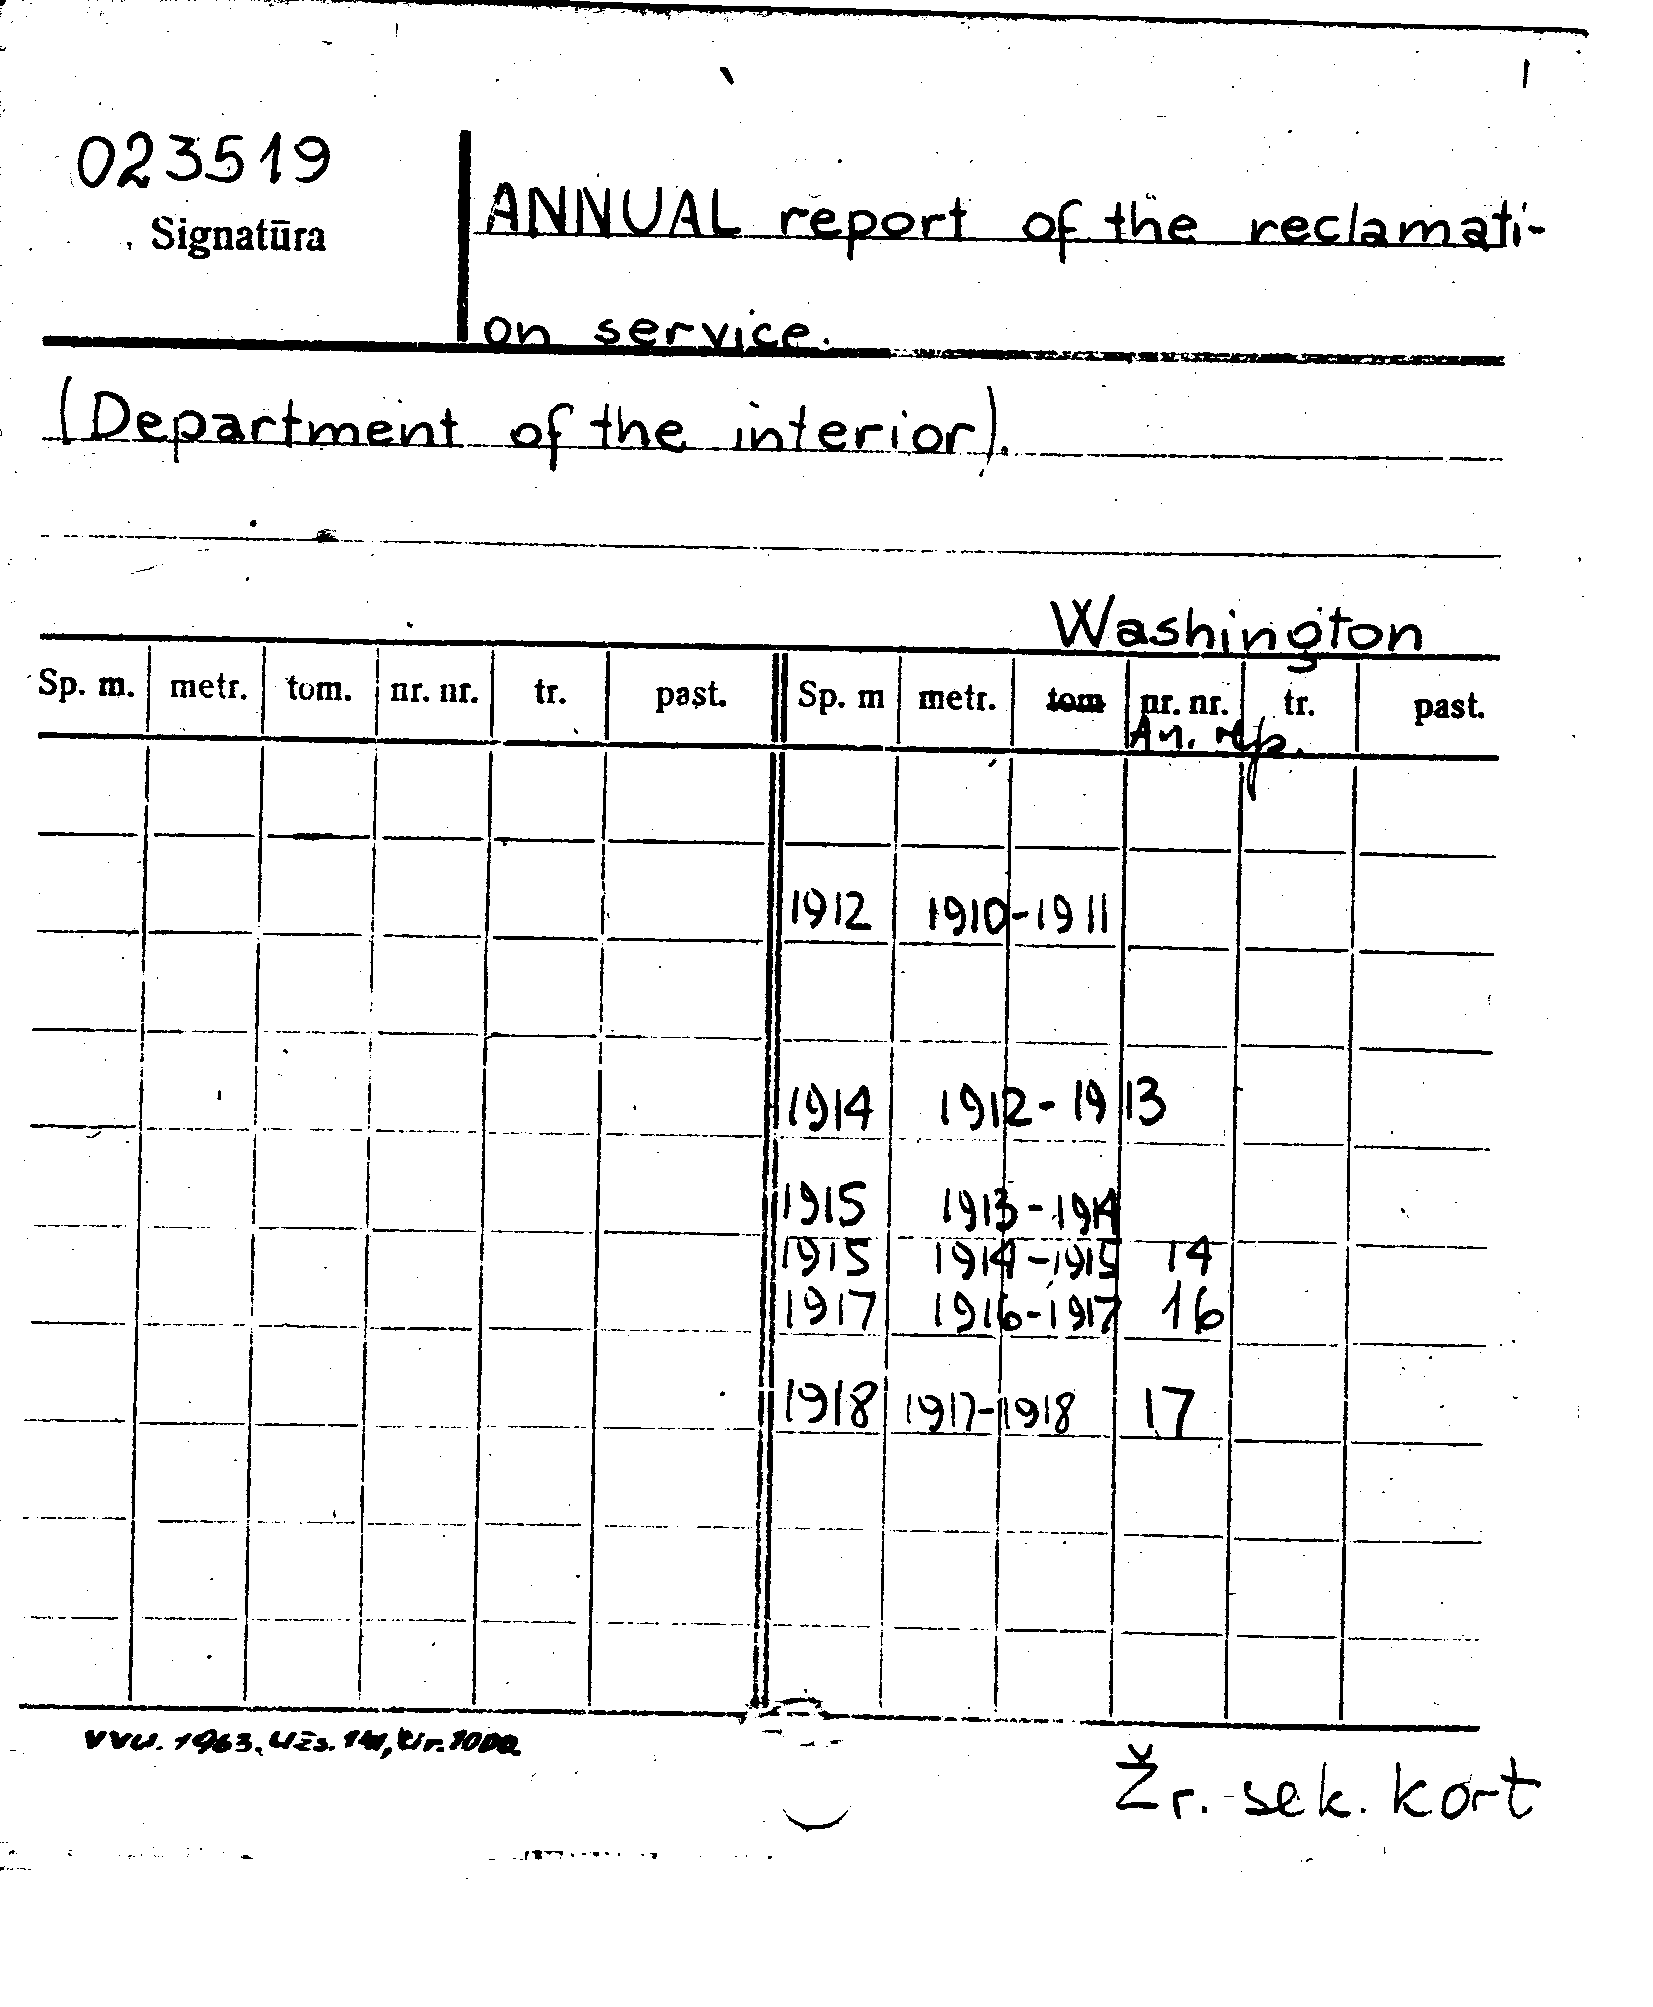 023519
Signatūra
ANNUAL report of the reclamati-
on service.
(Department of the interior).
Washington
Sp. m. metr. tom. nr. nr. tr. past. Sp. m metr. tom nr. nr. tr. past.
An. rep.
1912 1910-1911
1914 1912-1913
1915 1913-1914
1915 1914-1915 14
1917 1916-1917 16
1918 1917-1918 17
VVU. 1963. Užs. 141, tir. 1000.
Žr. sek. kort